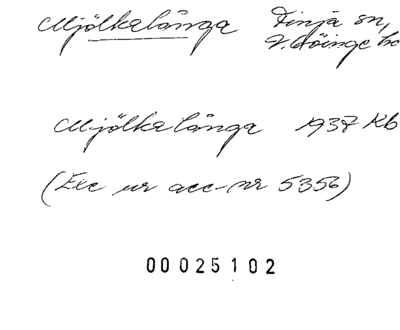 Mjölkalånga Finja sn,
V. Göinge hd
Mjölkalånga 1937 Kb
(Exc ur acc-nr 5356)
00 025 1 02